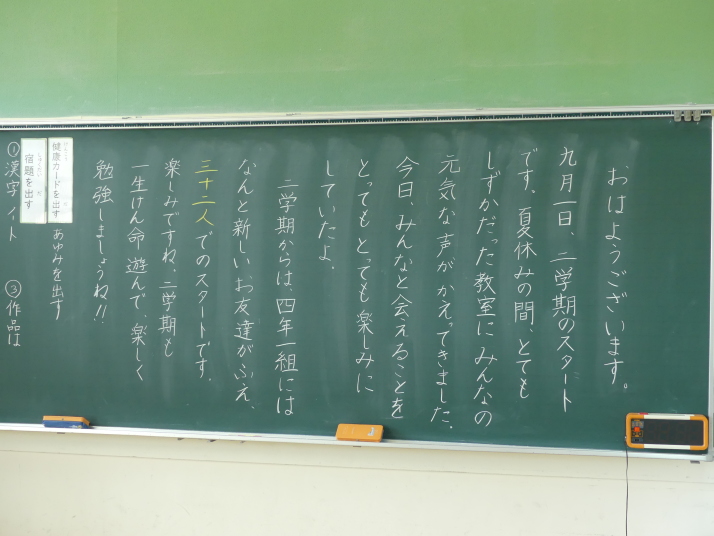 おはようございます。
九月一日、二学期のスタート
です。夏休みの間、とても
しずかだった教室にみんなの
元気な声がかえってきました。
今日、みんなと会えることを
とってもとっても楽しみに
していたよ。
二学期からは、四年一組には
なんと新しいお友達がふえ、
三十二人でのスタートです。
楽しみですね。二学期も
一生けん命遊んで、楽しく
勉強しましょうね!!
健康カードを出す
あゆみを出す
宿題を出す
①漢字ノート
③作品は